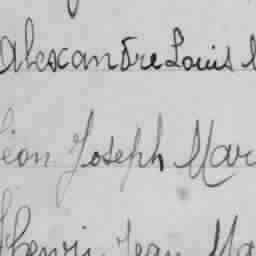 Alexandre Louis
éon Joseph Mar
henri Jean Ma